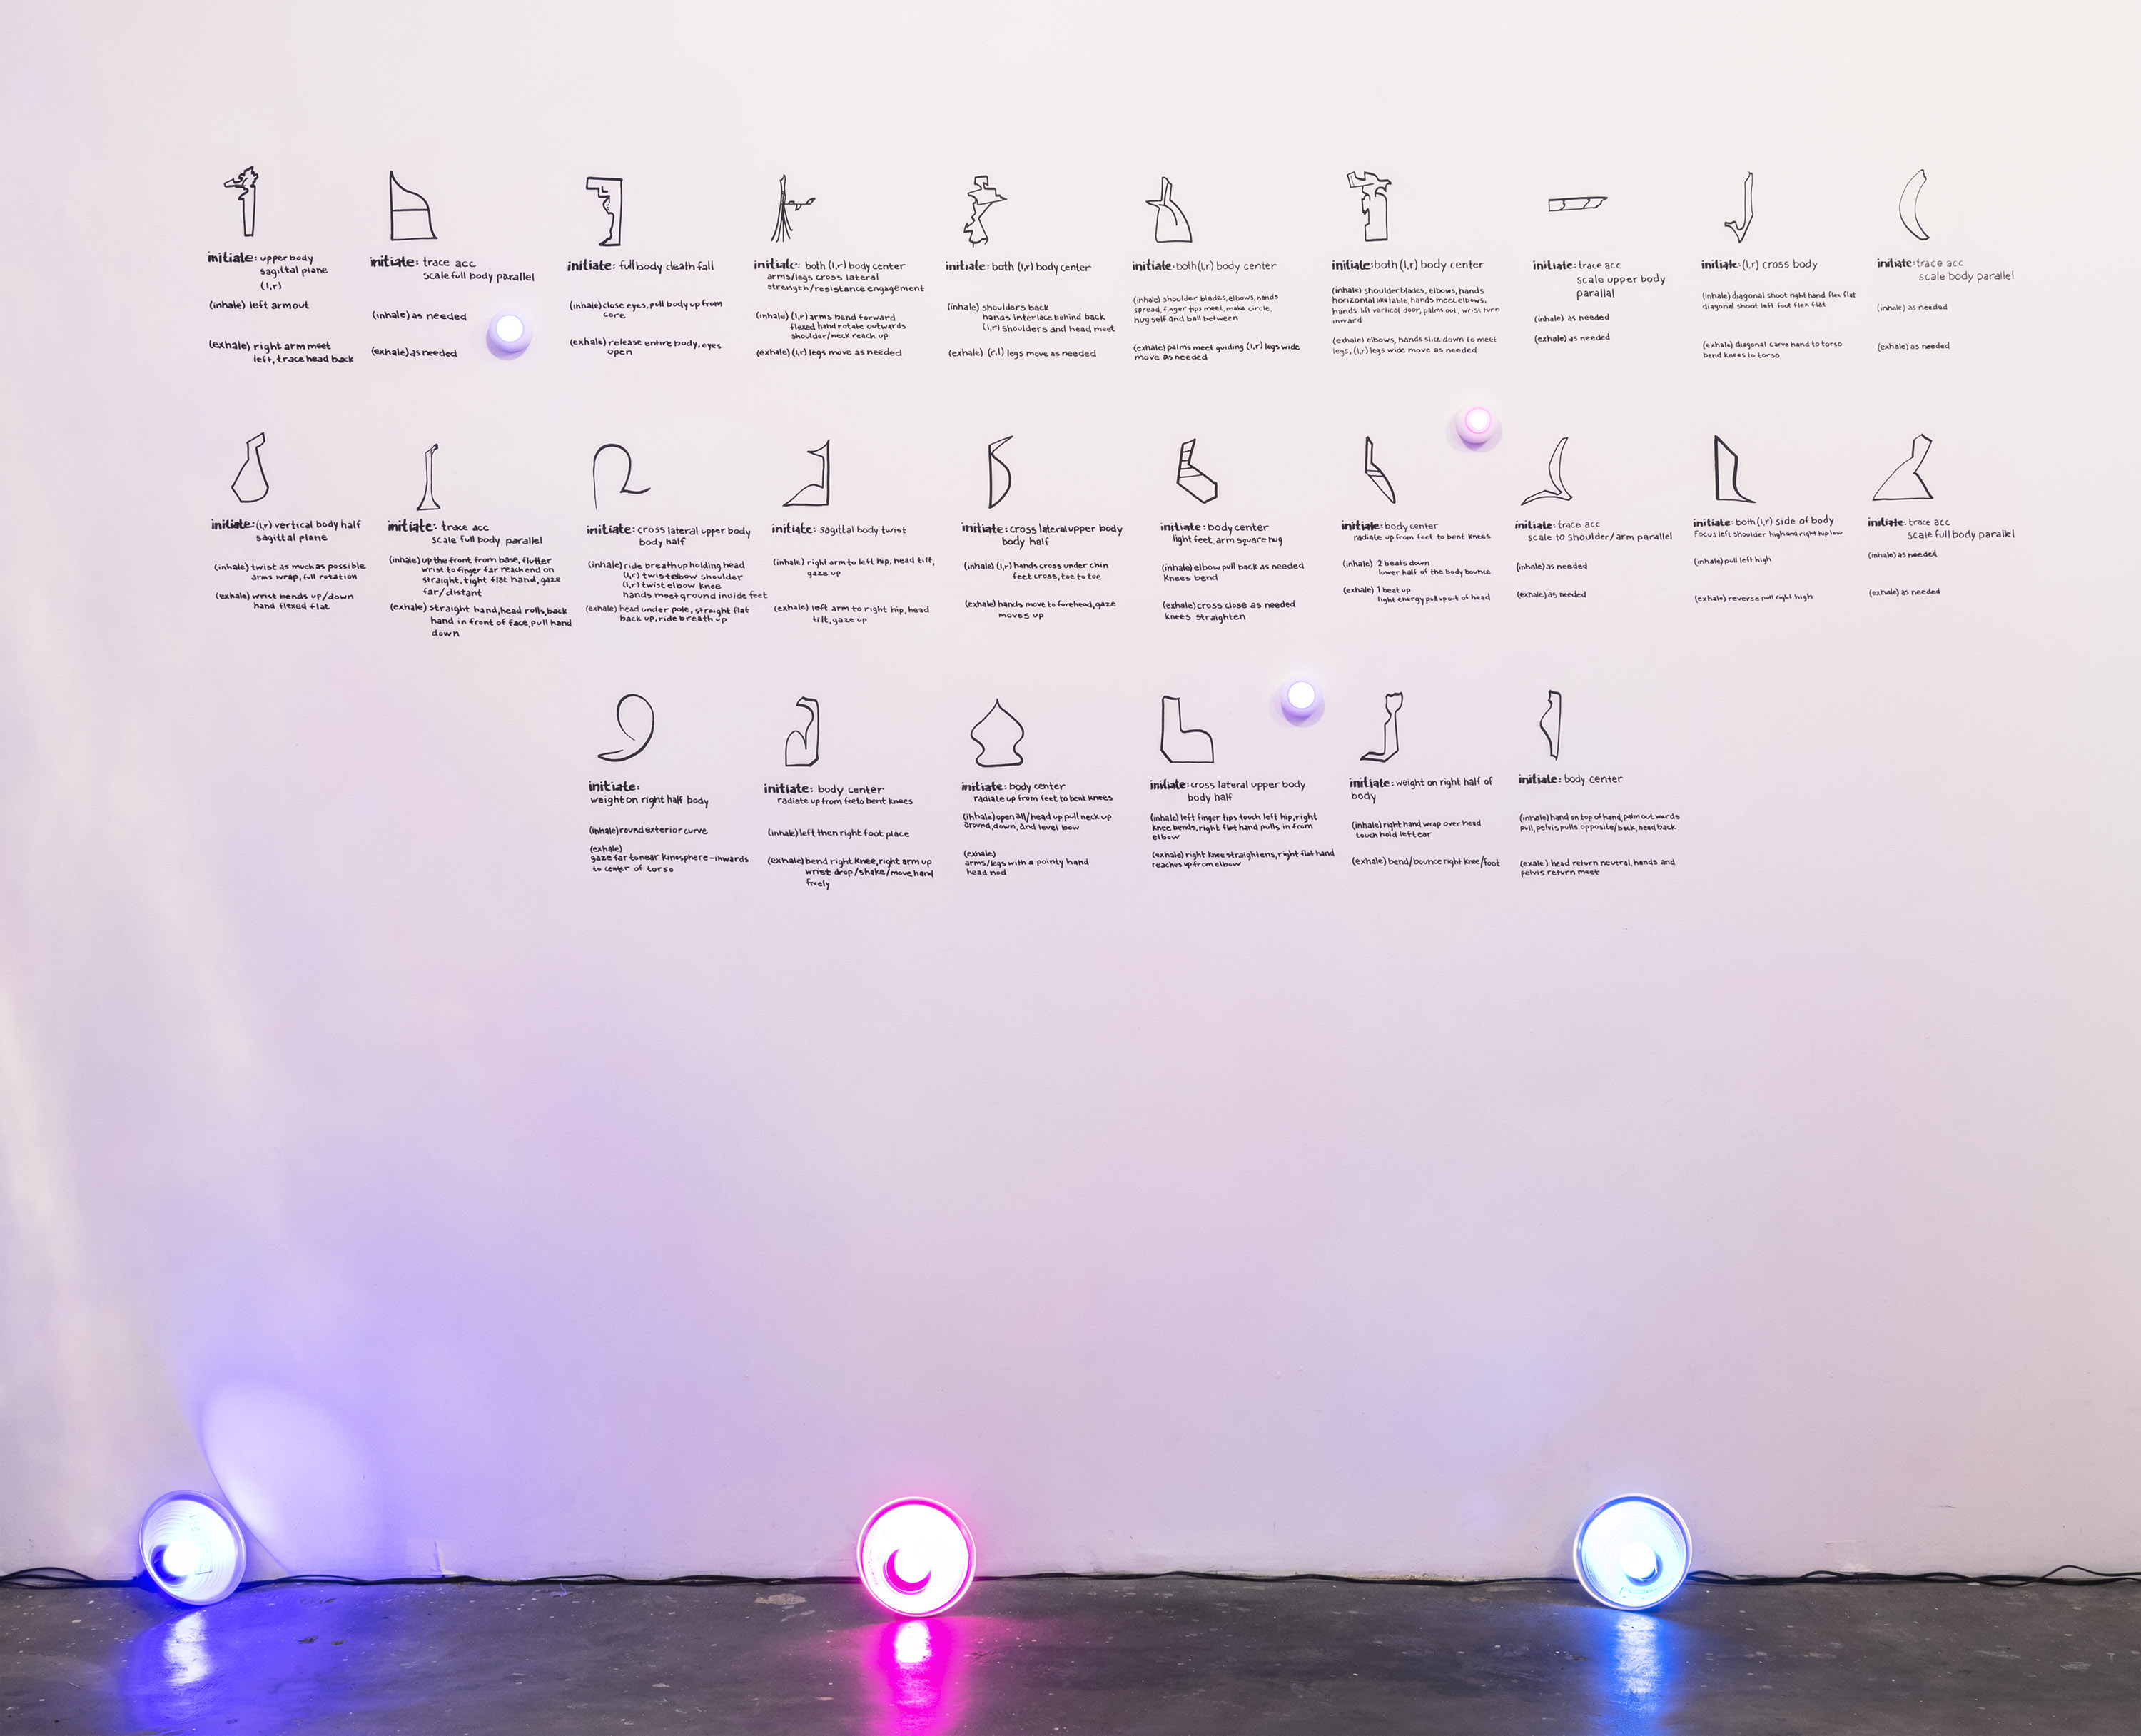 initiate: upper body
sagittal plane
(l,r)
(inhale) left arm out
(exhale) right arm meet
left, trace head back
initiate: trace acc
scale full body parallel
(inhale) as needed
(exhale) as needed
initiate: full body death fall
(inhale) close eyes, pull body up from
core
(exhale) release entire body, eyes
open
initiate: both (l,r) body center
arms/legs cross lateral
strength/resistance engagement
(inhale) (l,r) arms bend forward
flexed hand rotate outwards
shoulder/neck reach up
(exhale) (l,r) legs move as needed
initiate: both (l,r) body center
(inhale) shoulders back
hands interlace behind back
(l,r) shoulders and head meet
(exhale) (r,l) legs move as needed
initiate: both (l,r) body center
(inhale) shoulder blades, elbows, hands
spread, finger tips meet, make circle,
hug self and ball between
(exhale) palms meet guiding (l,r) legs wide
move as needed
initiate: both (l,r) body center
(inhale) shoulder blades, elbows, hands
horizontal like table, hands meet elbows.
hands lift vertical door, palms out, wrist turn
inward
(exhale) elbows, hands slice down to meet
legs, (l,r) legs wide move as needed
initiate: trace acc
scale upper body
parallal
(inhale) as needed
(exhale) as needed
initiate: (l,r) cross body
(inhale) diagonal shoot right hand flex flat
diagonal shoot left foot flex flat
(exhale) diagonal carve hand to torso
bend knees to torso
initiate: trace acc
scale body parallel
(inhale) as needed
(exhale) as needed
initiate: (l,r) vertical body half
sagittal plane
(inhale) twist as much as possible
arms wrap, full rotation
(exhale) wrist bends up/down
hand flexed flat
initiate: trace acc
scale full body parallel
(inhale) up the front from base, flutter
wrist to finger far reach end on
straight, tight flat hand, gaze
far/distant
(exhale) straight hand, head rolls, back
hand in front of face, pull hand
down
initiate: cross lateral upper body
body half
(inhale) ride breath up holding head
(l,r) twist elbow shoulder
(l,r) twist elbow knee
hands meet ground inside feet
(exhale) head under pole, straight flat
back up, ride breath up
initiate: sagittal body twist
(inhale) right arm to left hip, head tilt,
gaze up
(exhale) left arm to right hip, head
tilt, gaze up
initiate: cross lateral upper body
body half
(inhale) (l,r) hands cross under chin
feet cross, toe to toe
(exhale) hands move to forehead, gaze
moves up
initiate: body center
light feet, arm square hug
(inhale) elbow pull back as needed
knees bend
(exhale) cross close as needed
knees straighten
initiate: body center
radiate up from feet to bent knees
(inhale) 2 beats down
lower half of the body bounce
(exhale) 1 beat up
light energy pull up out of head
initiate: trace acc
scale to shoulder/arm parallel
(inhale) as needed
(exhale) as needed
initiate: both (l,r) side of body
Focus left shoulder high and right hip low
(inhale) pull left high
(exhale) reverse pull right high
initiate: trace acc
scale full body parallel
(inhale) as needed
(exhale) as needed
initiate:
weight on right half body
(inhale) round exterior curve
(exhale)
gaze far to near kinosphere - inwards
to center of torso
initiate: body center
radiate up from feet to bent knees
(inhale) left then right foot place
(exhale) bend right knee, right arm up
wrist drop/shake/move hand
freely
initiate: body center
radiate up from feet to bent knees
(inhale) open all/head up, pull neck up
around, down, and level bow
(exhale)
arms/legs with a pointy hand
head nod
initiate: cross lateral upper body
body half
(inhale) left finger tips touch left hip, right
knee bends, right flat hand pulls in from
elbow
(exhale) right knee straightens, right flat hand
reaches up from elbow
initiate: weight on right half of
body
(inhale) right hand wrap over head
touch hold left ear
(exhale) bend/bounce right knee/foot
initiate: body center
(inhale) hand on top of hand, palm outwards
pull, pelvis pulls opposite/back, head back
(exale) head return neutral, hands and
pelvis return meet